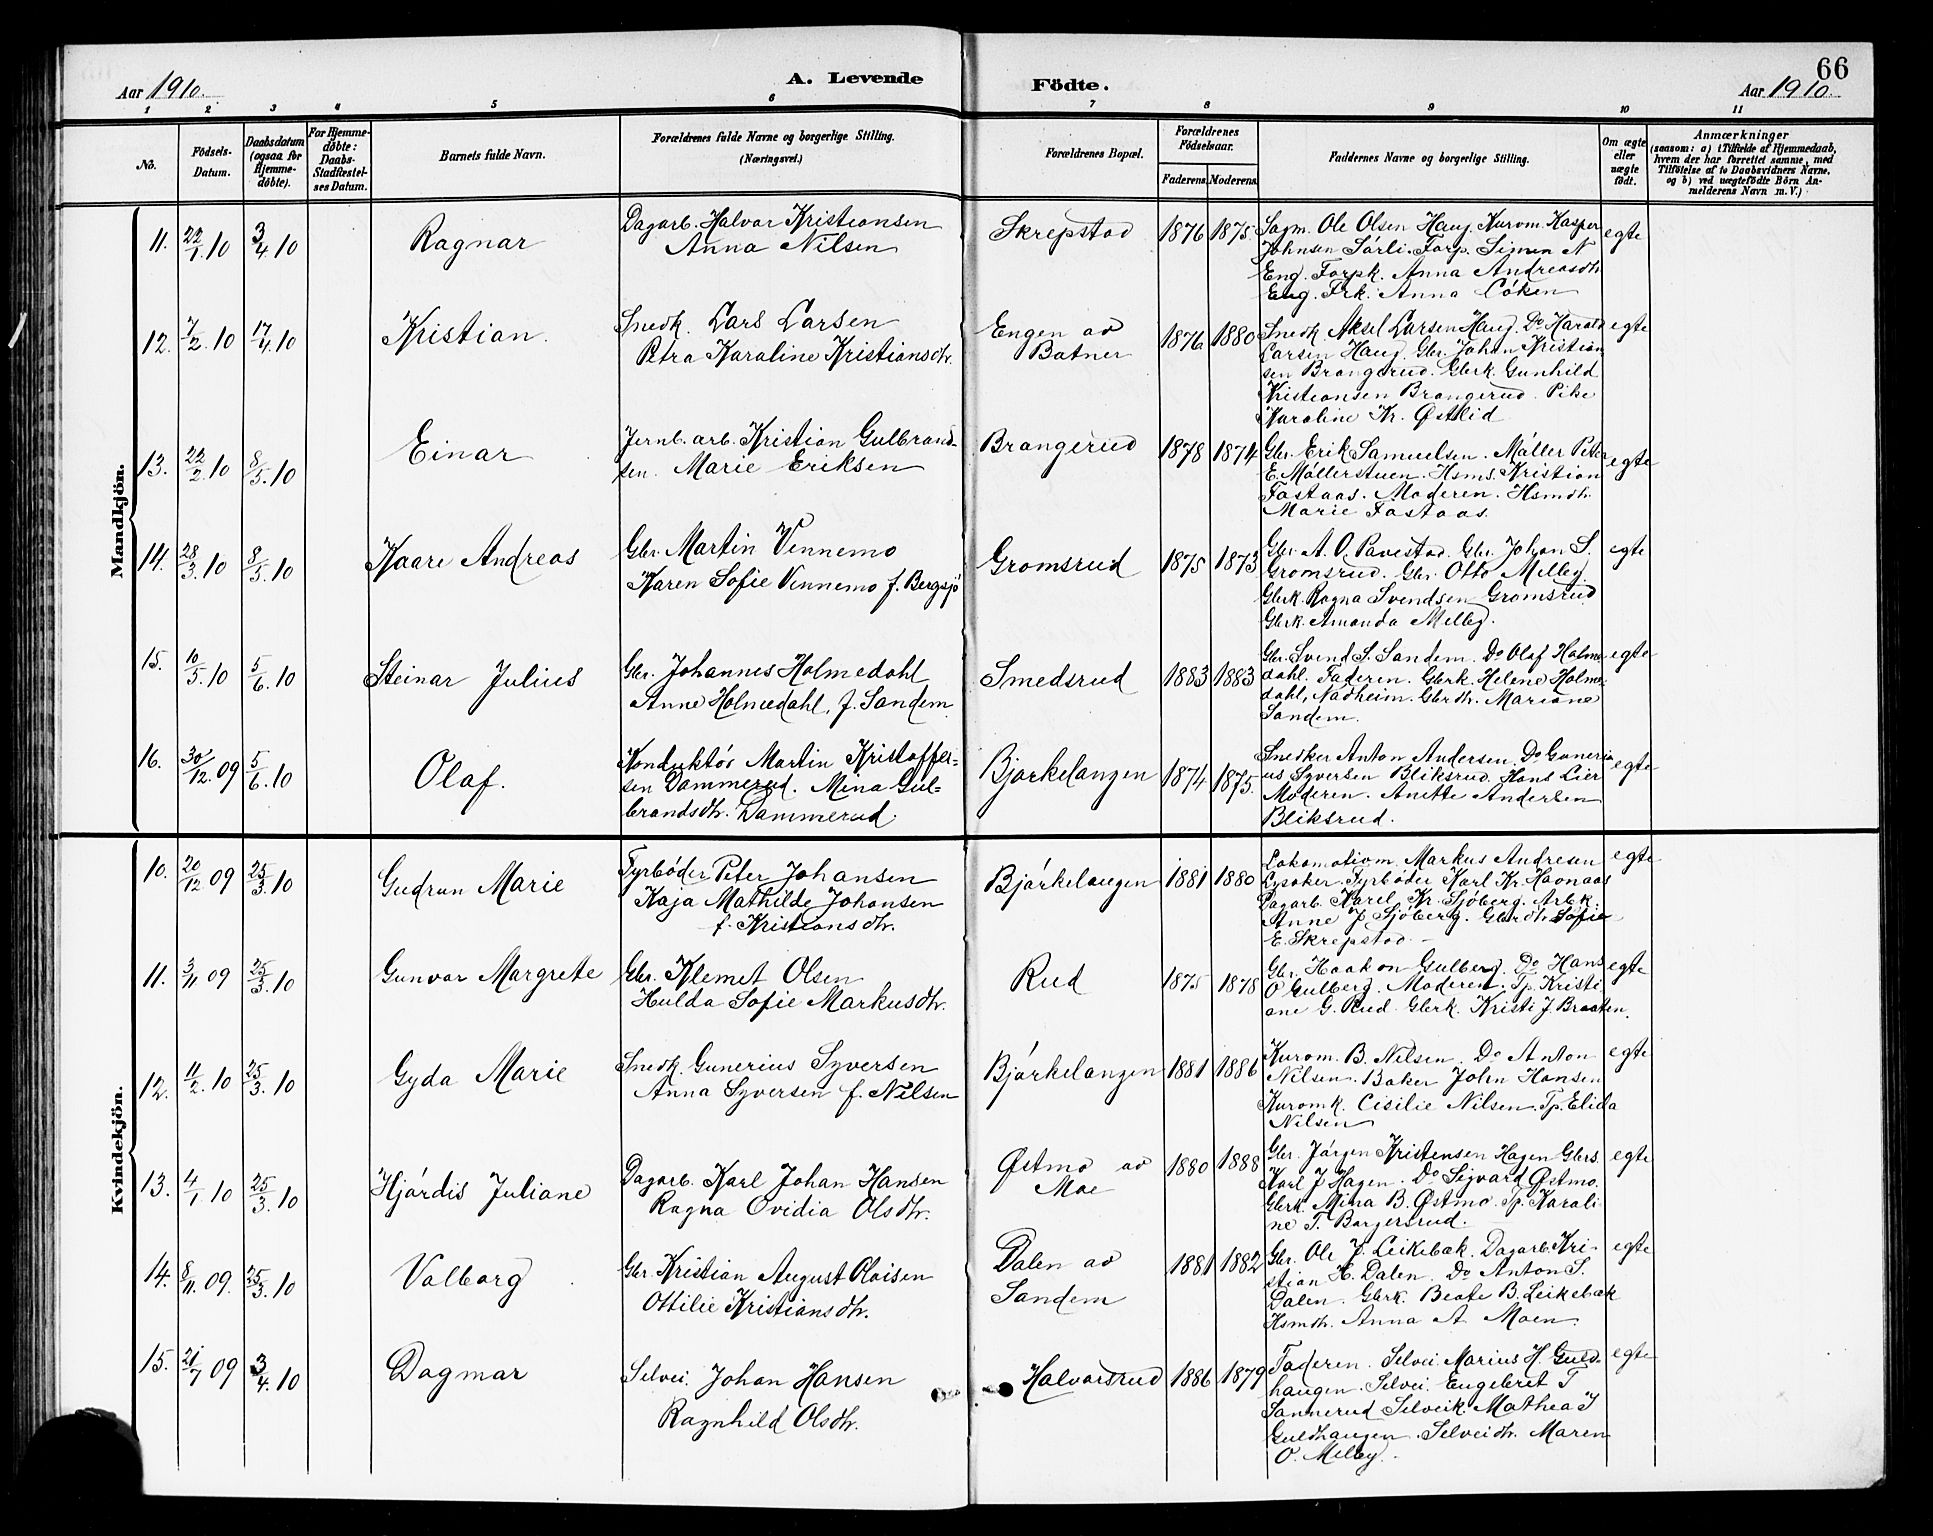 66
Aar 1910. A. Levende Födte. Aar 1910.
1 2 3 4 5 6 7 8 9 10 11
No.
Födsels-
Datum.
Daabsdatum
(ogsaa for
Hjemme-
döbte).
For Hjemme-
døbte:
Daabs-
Stadfæstel-
ses Datum.
Barnets fulde Navn.
Forældrenes fulde Navne og borgerlige Stilling.
(Næringsvei.)
Forældrenes Bopæl.
Forældrenes
Födselsaar.
Faderens. Moderens.
Faddernes Navne og borgerlige Stilling.
Om ægte
eller
uægte
födt.
Anmærkninger
(saasom: a) i Tilfælde af Hjemmedaab,
hvem der har forrettet samme, med
Tilföielse af to Daabsvidners Navne,
og b) ved uægtefödte Börn An-
melderens Navn m. V.)
Mandkjön.
11. 22/1 10 3/4 10 Ragnar
Dagarb. Halvor Kristiansen
Anna Nilsen
Skrepstad 1876 1875
Sagm. Ole Olsen Haug. Kurvm. Kasper
Johnsen Sörli. Forp. Simen N
Eng. Forpk. Anna Andreasdtr.
Eng. Frk. Anna Cöken
egte
12. 7/2 10 17/4 10 Kristian.
Snedk. Lars Larsen
Petra Karoline Kristiansdtr.
Engen av
Botner
1876 1880
Snedk. Aksel Larsen Haug. Do Harald
Larsen Haug. Gbr. Johan Kristian
sen Brangerud. Gbrk. Gunhild
Kristiansen Brangerud. Pike
Karoline Kr. Østlid
egte
13. 22/2 10 8/5 10 Einar
Jernb. arb. Kristian Gulbrand-
sen. Marie Eriksen
Brangerud 1878 1874
Gbr. Erik Samuelsen. Möller Peter
E. Möllerstuen. Hsms. Kristian
Fostaas. Moderen. Hsmdtr.
Marie Fostaas.
egte
14. 28/3 10 8/5 10 Kaare Andreas
Gbr. Martin Vennemo
Karen Sofie Vennemo f. Bergsjö
Gromsrud 1875 1873
Gbr. A. O. Pavestad. Gbr. Johan S.
Gromsrud. Gbr. Otto Melby.
Gbrk. Ragna Svendsen Gromsrud
Gbrk. Amanda Melby.
egte
15. 10/5 10 5/6 10 Steinar Julius
Gbr. Johannes Holmedahl
Anne Holmedahl, f. Sandem
Smedsrud 1883 1883
Gbr. Svend S. Sandem. Do Olaf Holme-
dahl. Faderen. Gbrk. Helene Holme-
dahl, Nadheim. Gbrdtr. Mariane
Sandem.
egte
16. 30/12 09 5/6 10 Olaf.
Konduktör Martin Kristoffer-
sen Dammerud. Mina Gul-
brandsdtr. Dammerud.
Bjørkelangen 1874 1875.
Snedker Anton Andersen. Do Guneri-
us Syversen Bliksrud. Hans Lier
Moderen. Anette Andersen
Bliksrud.
egte
Kvindekjön.
10. 20/12 09 25/3 10 Gudrun Marie
Fyrböder Peter Johansen
Kaja Mathilde Johansen
f. Kristiansdtr.
Bjørkelangen 1881 1880
Lokomotivm. Markus Andresen
Lysaker. Fyrböder Karl Kr. Havnaas
Dagarb. Karel Kr. Sjöberg. Arbk.
Anne J Sjöberg. Gbrdtr. Sofie
E. Skrepstad.
egte
11. 3/11 09 25/3 10 Gunvor Margrete
Gbr. Klemet Olsen
Hulda Sofie Markusdtr.
Rud 1875 1878
Gbr. Haakon Gulberg. Do Hans
O Gulberg. Moderen. Tp. Kristi
ane G. Rud. Gbrk. Kristi J. Braaten.
egte
12. 11/2 10 25/3 10 Gyda Marie
Snedk. Gunerius Syversen
Anna Syversen f. Nilsen
Bjørkelangen 1881 1886
Kurvm. B. Nilsen. Do Anton
Nilsen. Baker John Hansen
Kurvmk. Cisilie Nilsen. Tp. Elida
Nilsen
egte
13. 4/1 10 25/3 10 Hjördis Juliane
Dagarb. Karl Johan Hansen
Ragna Ovidia Olsdtr.
Østmo av
Moe
1880 1888
Gbr. Jörgen Kristensen Hagen Gbrs.
Karl J Hagen. Do Sigvard Østmo.
Gbrk. Mina B. Østmo. Tp. Karoli
ne T. Borgersrud.
egte
14. 8/11 09. 25/3 10 Valborg
Gbr. Kristian August Olaisen
Ottilie Kristiansdtr.
Dalen av
Sandem
1881 1882
Gbr. Ole J. Leikebæk. Dagarb. Kri-
stian H. Dalen. Do Anton S.
Dalen. Gbrk. Beate B. Leikebæk
Hsmdtr. Anna A. Moen.
egte
15. 21/7 09 3/4 10 Dagmar
Selvei. Johan Hansen
Ragnhild Olsdtr.
Halvorsrud 1886 1879
Faderen. Selvei. Marius H. Guld-
haugen. Selvei. Engebret T
Sannerud Selveik. Mathea J
Guldhaugen. Selveidtr. Maren
O. Melby.
egte